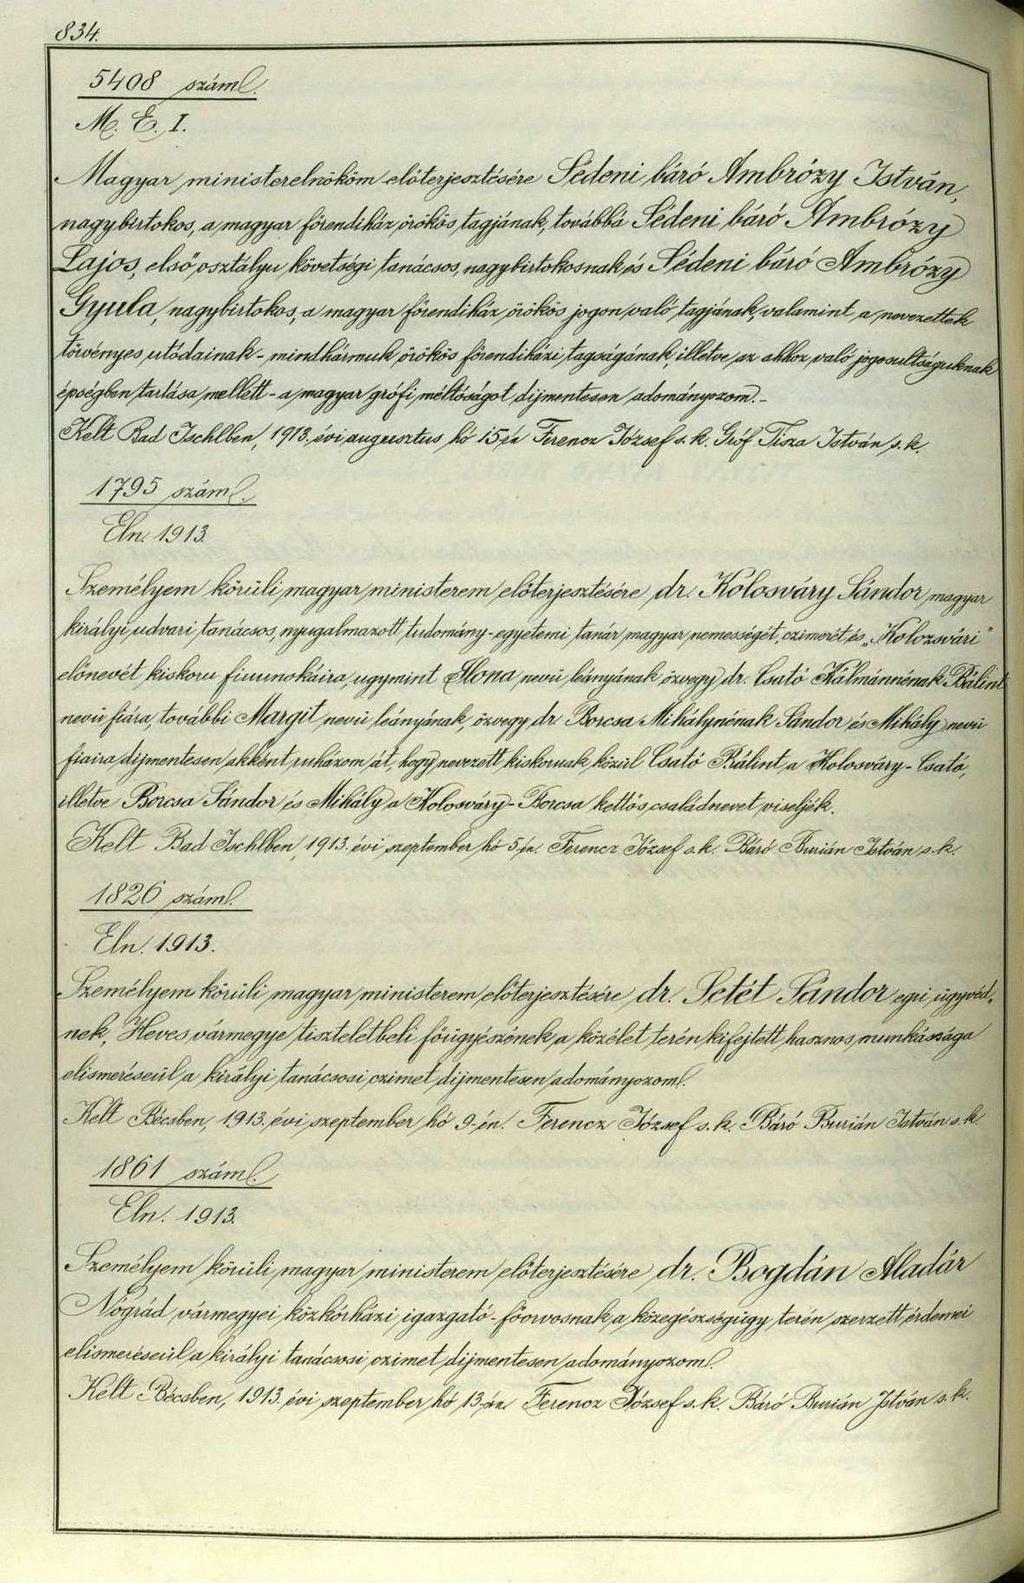 834.
5408 szám.
M. E. I.
Magyar ministerelnököm előterjesztésére Sédeni báró Ambrózy István,
nagybirtokos, a magyar főrendiház örökös tagjának, továbbá Sédeni báró Ambrózy
Lajos, első osztályu követségi tanácsos, nagybirtokosnak és Sédeni báró Ambrózy
Gyula, nagybirtokos, a magyar főrendiház örökös jogon való tagjának, valamint a nevezettek
törvényes utódainak - mindhármuk örökös főrendiházi tagságának, illetve az ahhoz való jogosultságuknak
épségben tartása mellett - a magyar grófi méltóságot dijmentesen adományozom. -
Kelt Bad Ischlben, 1913. évi augusztus hó 15-én Ferencz József s. k. Gróf Tisza István s. k.
1795 szám.
Eln. 1913.
Személyem körüli magyar ministerem előterjesztésére dr. Kolosváry Sándor magyar
királyi udvari tanácsos, nyugalmazott tudomány-egyetemi tanár magyar nemességét, czimerét és „Kolozsvári"
előnevét kiskoru fiuunokáira, ugymint Ilona nevü leányának özvegy dr. Csató Kálmánnénak Bálint
nevü fiára, továbbá Margit nevü leányának, özvegy dr. Borcsa Mihálynénak Sándor és Mihály nevü
fiaira dijmentesen akként ruházom át, hogy nevezett kiskoruak közül Csató Bálint a Kolosváry-Csató,
illetve Borcsa Sándor és Mihály a Kolosváry-Borcsa kettős családnevet viseljék.
Kelt Bad Ischlben, 1913. évi szeptember hó 5-én. Ferencz József s. k. Báró Burián István s. k.
1826 szám.
Eln. 1913.
Személyem körüli magyar ministerem előterjesztésére dr. Setét Sándor egri ügyvéd,
nek, Heves vármegye tiszteletbeli főügyészének a közélet terén kifejtett hasznos munkássága
elismeréseül a királyi tanácsosi czimet dijmentesen adományozom.
Kelt Bécsben, 1913. évi szeptember hó 9-én. Ferencz József s. k. Báró Burián István s. k.
1861 szám.
Eln. 1913.
Személyem körüli magyar ministerem előterjesztésére dr. Bogdán Aladár
Nógrád vármegyei közkórházi igazgató-főorvosnak a közegészségügy terén szerzett érdemei
elismeréseül a királyi tanácsosi czimet dijmentesen adományozom.
Kelt Bécsben, 1913. évi szeptember hó 13-án. Ferencz József s. k. Báró Burián István s. k.